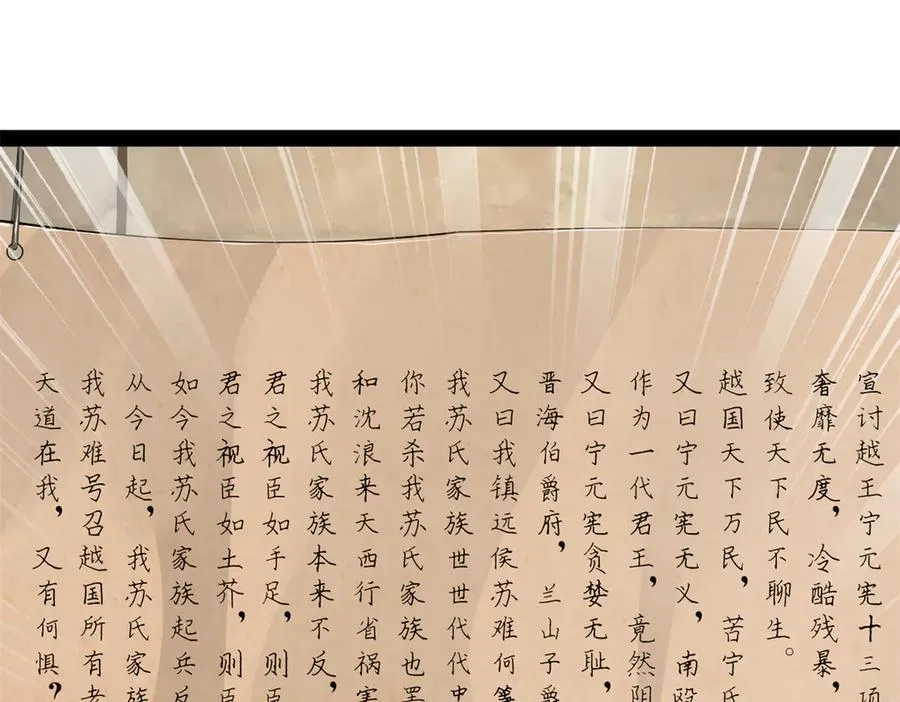 宣讨越王宁元宪十三项
奢靡无度，冷酷残暴，
致使天下民不聊生。
越国天下万民，苦宁氏
又曰宁元宪无义，南殴
作为一代君王，竟然阴
又曰宁元宪贪婪无耻，
晋海伯爵府，兰山子爵
又曰我镇远侯苏难何等
我苏氏家族世世代代忠
你若杀我苏氏家族也罢
和沈浪来天西行省祸害
我苏氏家族本来不反，
君之视臣如手足，则臣
君之视臣如土芥，则臣
如今我苏氏家族起兵反
从今日起，我苏氏家族
我苏难号召越国所有老
天道在我，又有何惧？